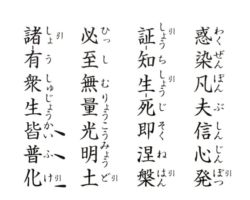 惑染凡夫信心発
わくぜんぼんぶしんじんほつ
証知生死即涅槃
しょうちしょうじそくねはん
引引
必至無量光明土
ひっしむりょうこうみょうど
引
諸有衆生皆普化
しょうしゅじょうかいふけ
引引